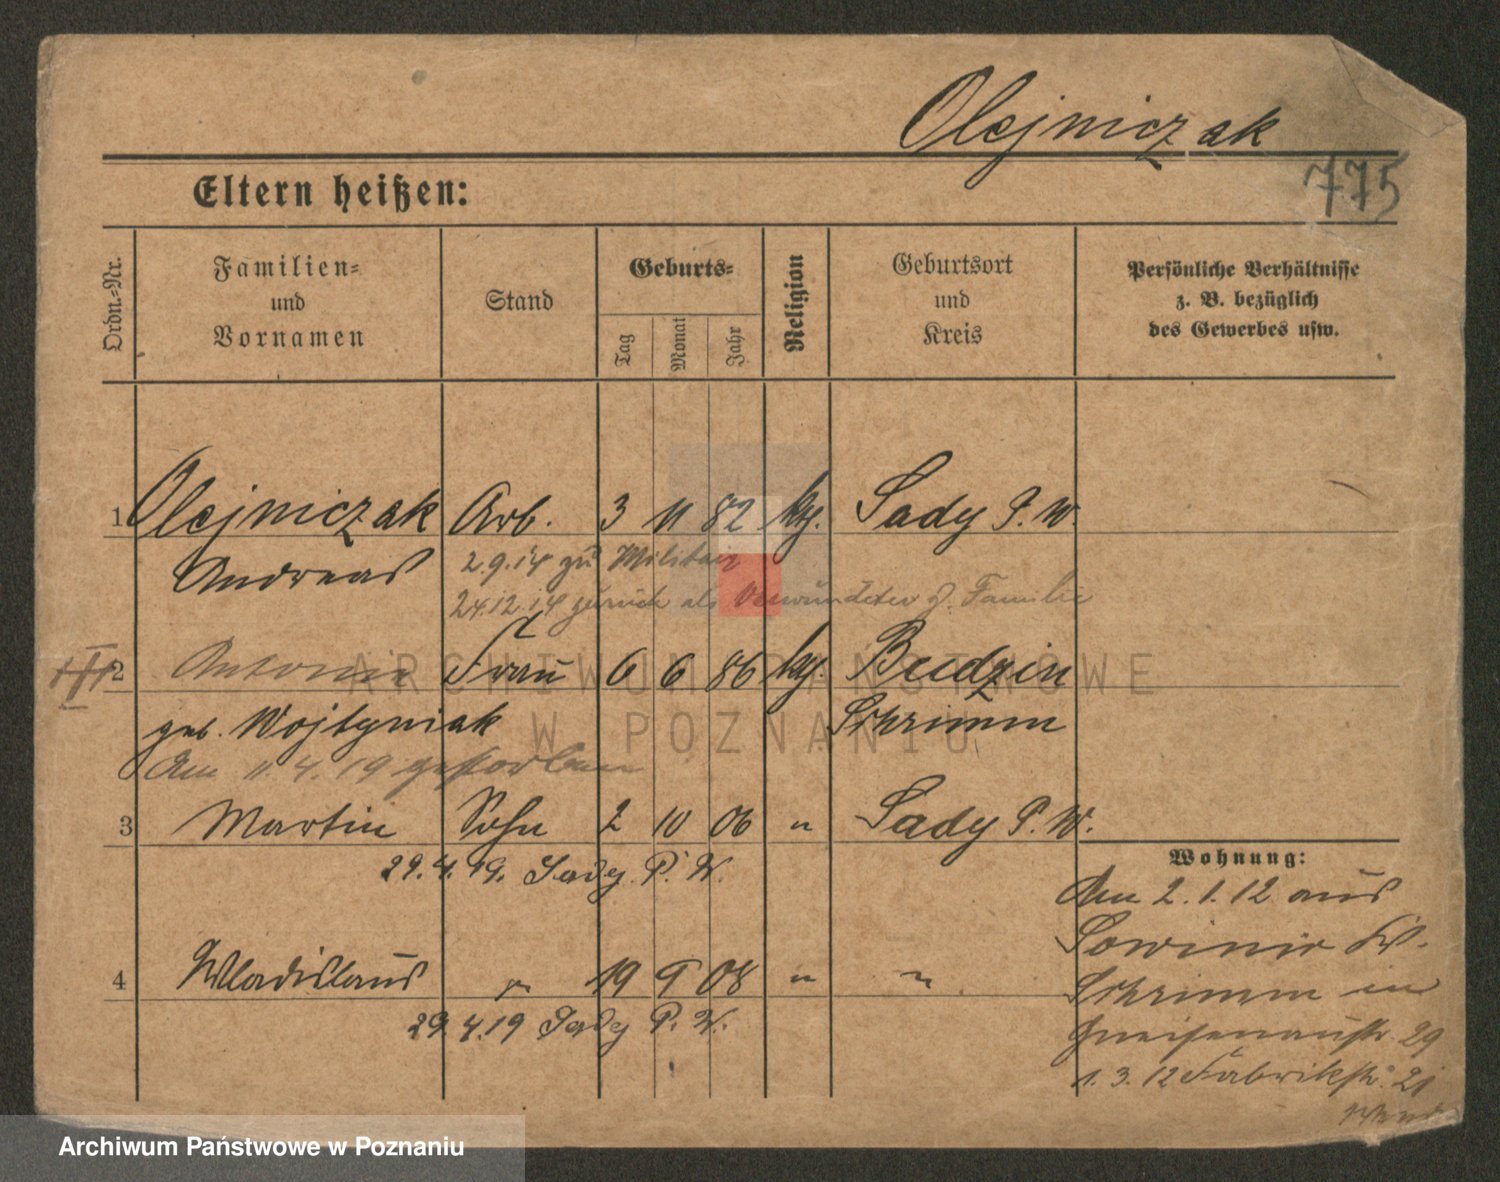 Olejniczak
775
Eltern heißen:
Ordn.-Nr.
Familien- und Vornamen
Stand
Geburts-
Tag
Monat
Jahr
Religion
Geburtsort und Kreis
Persönliche Verhältnisse z. B. bezüglich des Gewerbes usw.
1 Olejniczak Arb. 3 11 82 kg. Sady P. W.
Andreas 2.9.14 zu Militair
24.12.14 zurück als Verwundeter z. Familie
III
2 Antonie Frau 6 6 86 kg. Budzin
geb. Wojtyniak Schrimm
Am 11.4.19 gestorben
3 Martin Sohn 2 10 06 " Sady P. W.
29.4.19. Sady P. W.
4 Wladislaus " 19 9 08 " "
29.4.19 Sady P. W.
Wohnung:
Am 2.1.12 aus
Sowinir Kr.
Schrimm in
Gneisenaustr. 29
1.3.12 Fabrikstr. 21
ARCHIWUM PAŃSTWOWE
W POZNANIU
Archiwum Państwowe w Poznaniu